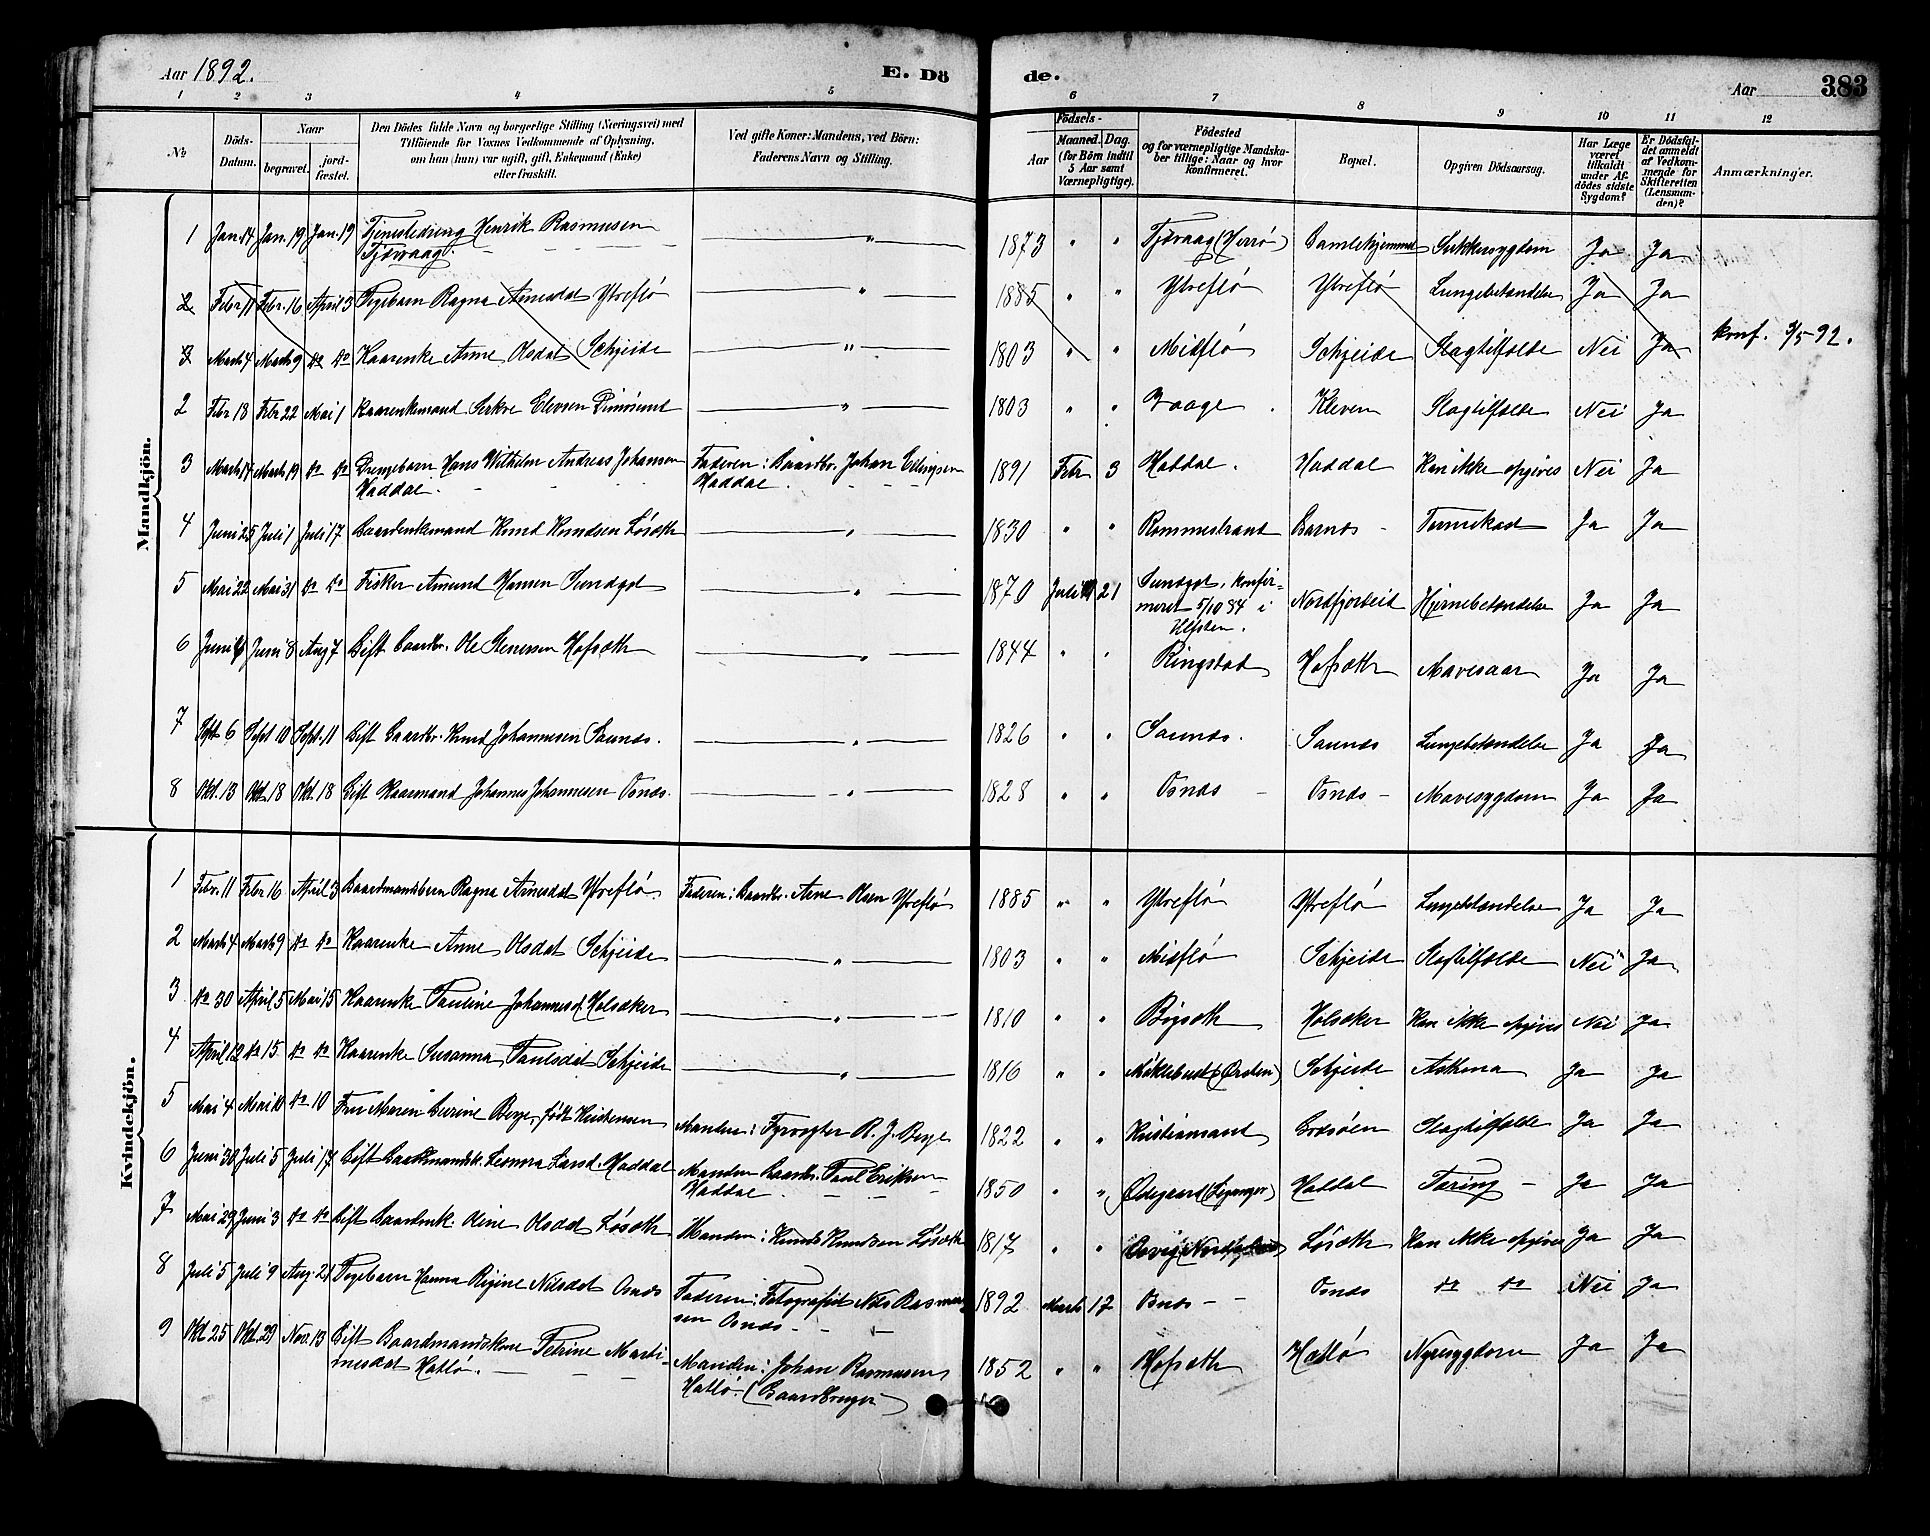 Aar 1892. E. Dö de. Aar 383
1 2 3 4 5 6 7 8 9 10 11 12
No
Döds-Datum.
Naar
begravet.
jordfæstet.
Den Dödes fulde Navn og borgerlige Stilling (Næringsvei) med
Tilföiende for Voxnes Vedkommende af Oplysning,
om han (hun) var ugift, gift, Enkemand (Enke)
eller fraskilt.
Ved gifte Koner: Mandens, ved Börn:
Faderens Navn og Stilling.
Födsels-
Aar
Maaned. Dag.
(for Börn indtil
5 Aar samt
Værnepligtige).
Födested
og for værnepligtige Mandskaber tillige: Naar og hvor
konfirmeret.
Bopæl.
Opgiven Dödsaarsag.
Har Læge
været
tilkaldt
under Afdödes sidste
Sygdom?
Er Dödsfaldet anmeldt
af Vedkommende for
Skifteretten
(Lensmanden)?
Anmærkninger.
Mandkjön.
1 Jan. 14 Jan. 19 Jan. 19 Henrik Rasmusen " 1873 " " Tjørvaag (Herrø) Gamlehjemmet Sukkersygdom Ja Ja
Tjørvaag.
2 Febr. 11 Febr. 16 April 3 Pigebarn Ragna Arnesdat Ytreflø " 1885 " " Ytreflø Ytreflø Lungebetændelse Ja Ja
3 Marts 4 Marts 9 do do Kaarenke Anne Olsdat Schjeide " 1803 " " Midflø Schjeide Slagtilfælde Nei Ja konf. 3/5-92.
2 Febr 18 Febr 22 Mai 1 Kaarenkemand Elevsen Dimösund " 1803 " " Vaage Kleven Slagtilfælde Nei Ja
3 Marts 14 Marts 19 do do Drengebarn Hans Wilhelm Andreas Johansen Faderen: Gaardbr. Johan Ellingsen 1891 Febr 3 Haddal. Haddal Kan ikke opgives Nei Ja
Haddal. Haddal.
4 Juni 25 Juli 1 Juli 17 Gaardenkemand Knud Knudsen Løseth " 1830 " " Rommestrand Garnes Ja Ja
5 Mai 22 Mai 31 do do Fisker Amund Hansen Sundgot " 1870 Juli 21 Sundgot, konfirmeret 5/10 84 i Ulfsten. Nordfjordeid Hjernebetændelse Ja Ja
6 Juni 4 Juni 8 Aug 7 Gift Gaardbr. Ole Stenersen Hofsæth " 1844 " " Ringstad Hofsæth Mavesaar Ja Ja
7 Sept 6 Sept 10 Sept. 11 Gift Gaardbr. Knud Johannesen Saunes. " 1826 " " Saunes. Saunes Lungebetændelse Ja Ja
8 Okt. 13 Okt. 18 Okt. 18 Gift Kaarmand Johannes Johannesen Osnes. " 1828 " " Osnes Osnes Mavesygdom Ja Ja
Kvindekjön.
1 Febr. 11 Febr 16 April 3 Gaardmandsbarn Ragna Arnesdat Ytreflø. Faderen: Gaardbr. Arne Olsen Ytreflø 1885 " " Ytreflø Ytreflø Lungebetændelse Ja Ja
2 Marts 4 Marts 9 do do Kaarenke Anne Olsdat Schjeide " 1803 " " Midflø Schjeide Slagtilfælde Nei Ja
3 do 30 April 5 Mai 15 Kaarenke Pauline Johannesd. Holsæker " 1810 " " Bigseth Holsæker Kan ikke opgives Nei Ja
4 April 12 do 15 do do Kaarenke Susanna Paulsdat Schjeide " 1816 " " Møklebust (Ørsten) Schjeide Asthma Ja Ja
5 Mai 4 Mai 10 do 10 Fru Maren Berge, født Kristensen Manden: Fyrvogter R. J. Berge 1822 " " Kristiansand Grasøen Slagtilfælde Ja Ja
6 Juni 30 Juli 5 Juli 17 Gift Gaardmandsk. Leonora Larsd. Haddal Manden Gaardbr. Paul Eriksen 1850 " " Ødegaard (Leganger) Haddal Tæring Ja Ja
Haddal
7 Mai 29 Juni 3 do do Gift Gaardmk. Oline Olsdat Løseth Manden: Knud Knudsen Løseth 1817 " " Løseth Kan ikke opgives Ja Ja
8 Juli 5 Juli 9 Aug. 21 Pigebarn Hanna Regine Nilsdat Osnes Faderen: Fotografist Nils Rasmus- 1892 Marts 17 Osnes Osnes do do Nei Ja
sen Osnes
9 Okt 25 Okt. 29 Nov. 13 Gift Gaardmandskone Petrine Marti- Manden: Johan Rasmusen 1852 " " Hofsæth Hatlø Nyresygdom Ja Ja
nusdat Hatlø. Hatlø. (Gaardbruger)